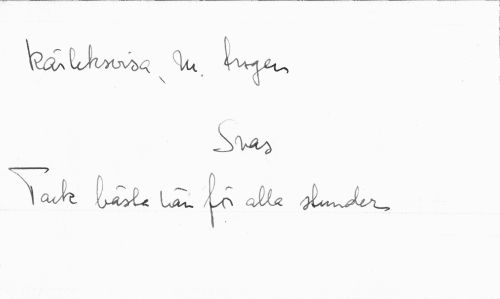 Kärleksvisa, m. Ingen
Svas
Tack bästa vän för alla stunder